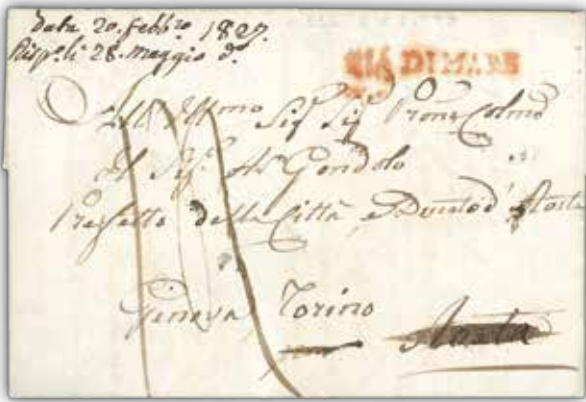 Data 20. Febb.ro 1827.
Risp.li 28. Maggio d.o
VIA DI MARE
All' Ill.mo Sig.r Sig.r Pron Colmo
Il Sig.r Av. Gondolo
Prefetto della Città e Ducato d'Aosta
Genova Torino
Aosta